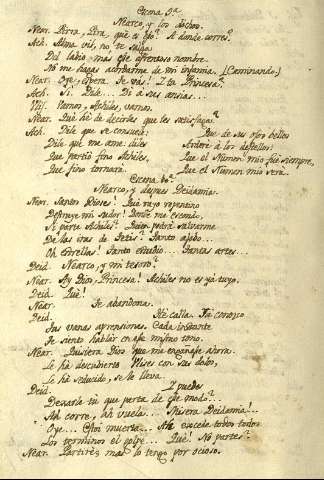 Escena 5ª
Nearco, y los dichos.
Near. Pirra, Pira, què es esto? A donde corres?
Ach. Alma vil, no, te salga
Del labio mas esse afrentoso nombre.
No me hagas acordarme de mi infamia. (Caminando.)
Near. Oye, espera. Te vàs? I tu Princesa?
Ach. Si. Dile... Di à sus ansias...
Ulis. Vamos, Achiles, vamos.
Near. Què hè de decirles que les satisfaga?
Ach. Dile que se consuele: Que de sus ojos bellos
Dile que me ame: dile Arderè à los destellos:
Que partiò fino Achiles, Que el Numen mio fuè siempre,
Que fino tornarà. Que el Numen mio serà.
Escena 6ª
Nearco, y despues Deidamia.
Near. Santos Dioses! Què rayo repentino
Destruye mi sudor! Donde me escondo,
Si parte Achiles? Quien podrà salvarme
De las iras de Tetis? Tanto afan...
Oh Estrellas! Tanto estudio... Tantas artes...
Deid. Nearco, y mi tesoro?
Near. Ay Dios, Princesa! Achiles no es yà tuyo.
Deid. Què!
Near. Te abandona.
Deid. Hè calla. Yà conozco
Tus vanas aprensiones. Cada instante
Te siento hablar en esse mismo tono.
Near. Quisiera Dios que me engañasse ahora.
Le hà descubierto Ulises con sus dolos,
Le hà seducido, se le lleva.
Deid. I puedes
Dexarle tù que parta de esse modo?...
Ah corre, ah vuela... Misera Deidamia!...
Oye... Estoi muerta... Ah excede todos
Los terminos el golpe... Què! No partes?
Near. Partirè; mas lo tengo por ocioso.